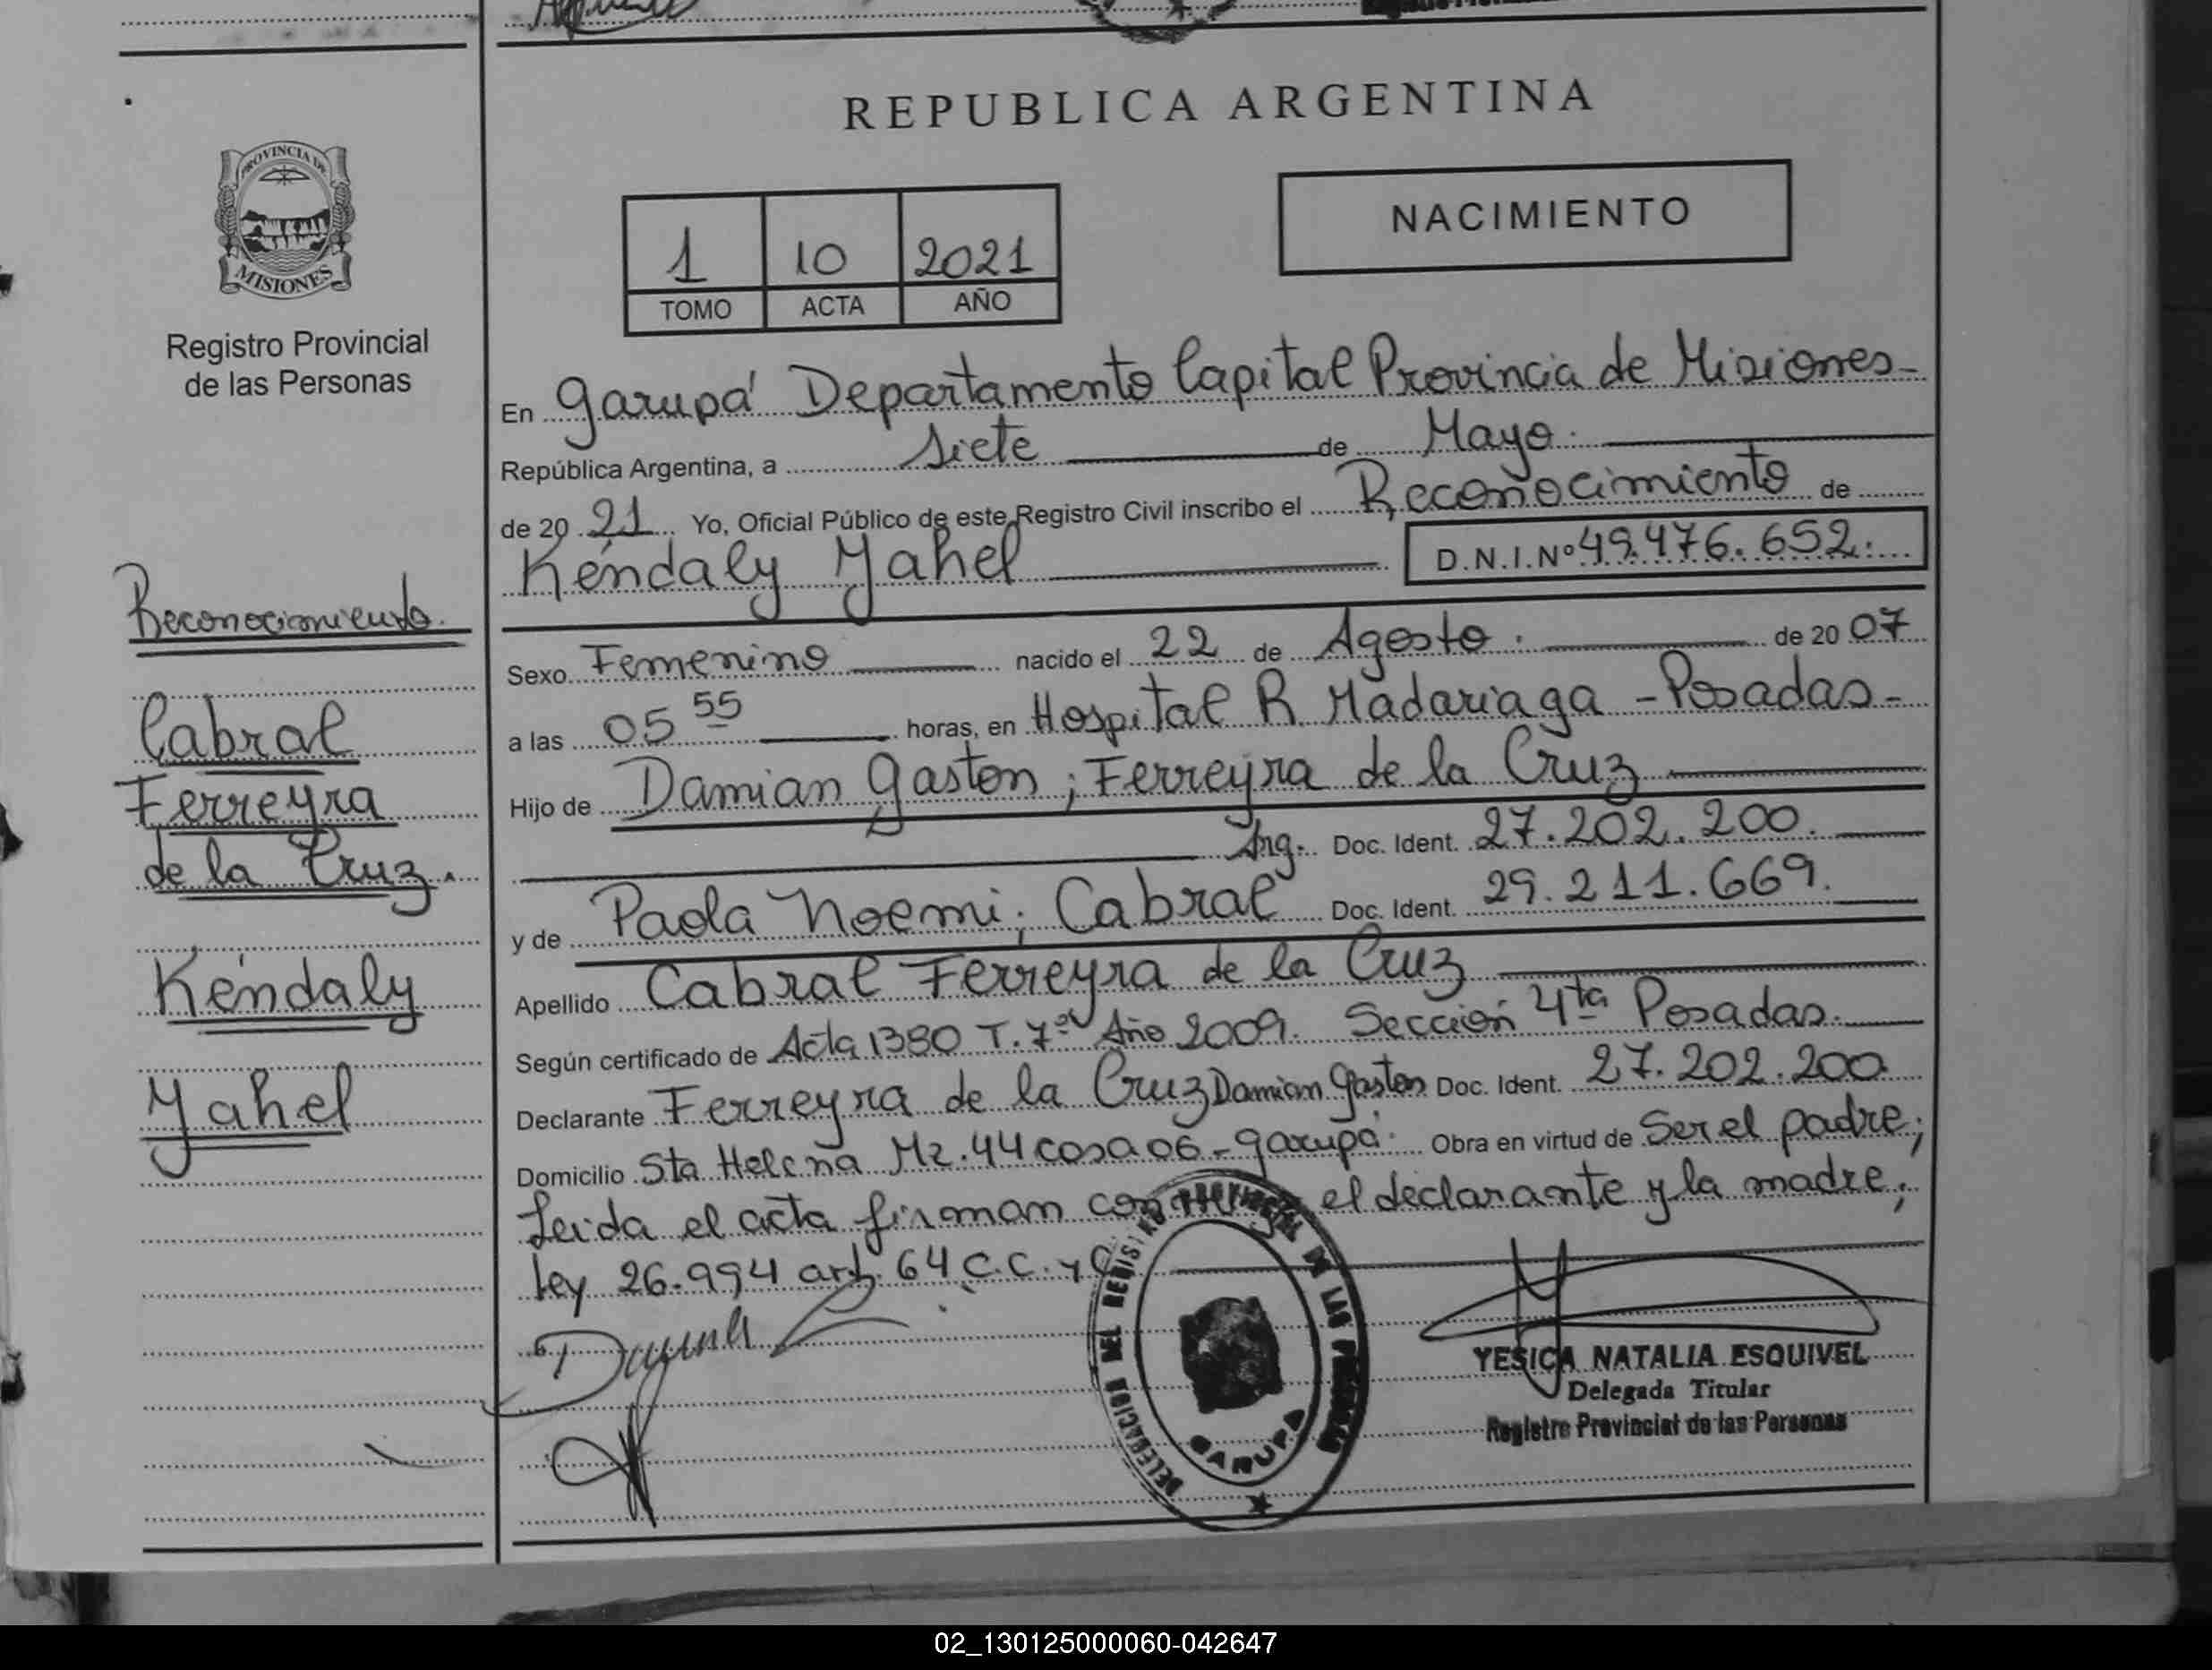 REPUBLICA ARGENTINA
PROVINCIA DE
MISIONES
Registro Provincial
de las Personas
NACIMIENTO
1 10 2021
TOMO ACTA AÑO
En Garupá Departamento Capital Provincia de Misiones-
República Argentina, a Siete de Mayo.
de 20 21 Yo, Oficial Público de este Registro Civil inscribo el Reconocimiento de
Kéndaly Yahel D.N.I.Nº 49.476.652.
Sexo Femenino nacido el 22 de Agosto. de 20 07
a las 05 55 horas, en Hospital R Madariaga - Posadas-
Hijo de Damian Gaston; Ferreyra de la Cruz
Arg. Doc. Ident. 27.202.200.
y de Paola Noemi; Cabral Doc. Ident. 29.211.669.
Apellido Cabral Ferreyra de la Cruz
Según certificado de Acta 1380 T. 7º Año 2009. Sección 4ta Posadas.
Declarante Ferreyra de la Cruz Damian Gaston Doc. Ident. 27.202.200
Domicilio Sta Helena Mz. 44 casa 06 - Garupá. Obra en virtud de Ser el padre;
Leida el acta firman conmigo el declarante y la madre;
Ley 26.994 art. 64 C.C. y C.
Reconocimiento.
Cabral
Ferreyra
de la Cruz.
Kéndaly
Yahel
DELEGACION DEL REGISTRO PROVINCIAL DE LAS PERSONAS
GARUPA
YESICA NATALIA ESQUIVEL
Delegada Titular
Registro Provincial de las Personas
02_130125000060-042647